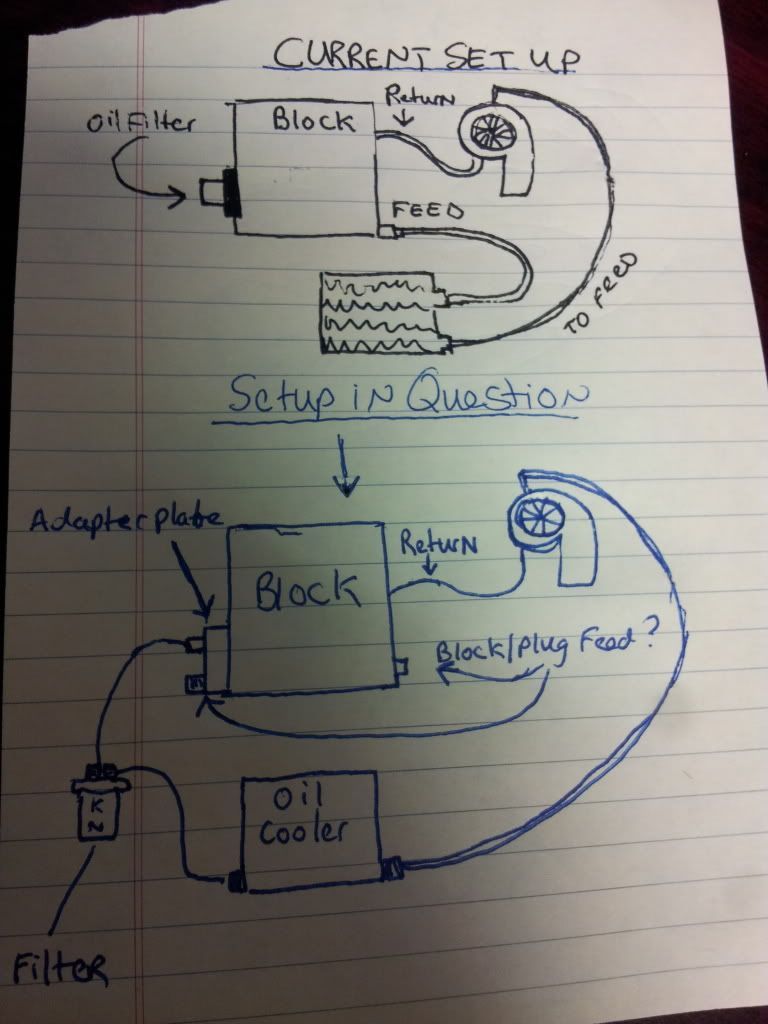 CURRENT SET UP
Return
Oil Filter
Block
FEED
TO FEED
Setup in Question
Adapter plate
Return
Block
Block/plug Feed?
K
N
Oil
Cooler
Filter